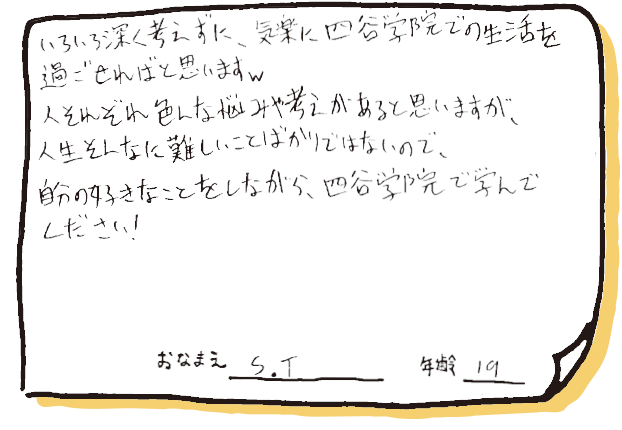 いろいろ深く考えずに、気楽に四谷学院での生活を
過ごせればと思いますw
人それぞれ色んな悩みや考えがあると思いますが、
人生そんなに難しいことばかりではないので、
自分の好きなことをしながら、四谷学院で学んで
ください!
おなまえ S.T 年齢 19